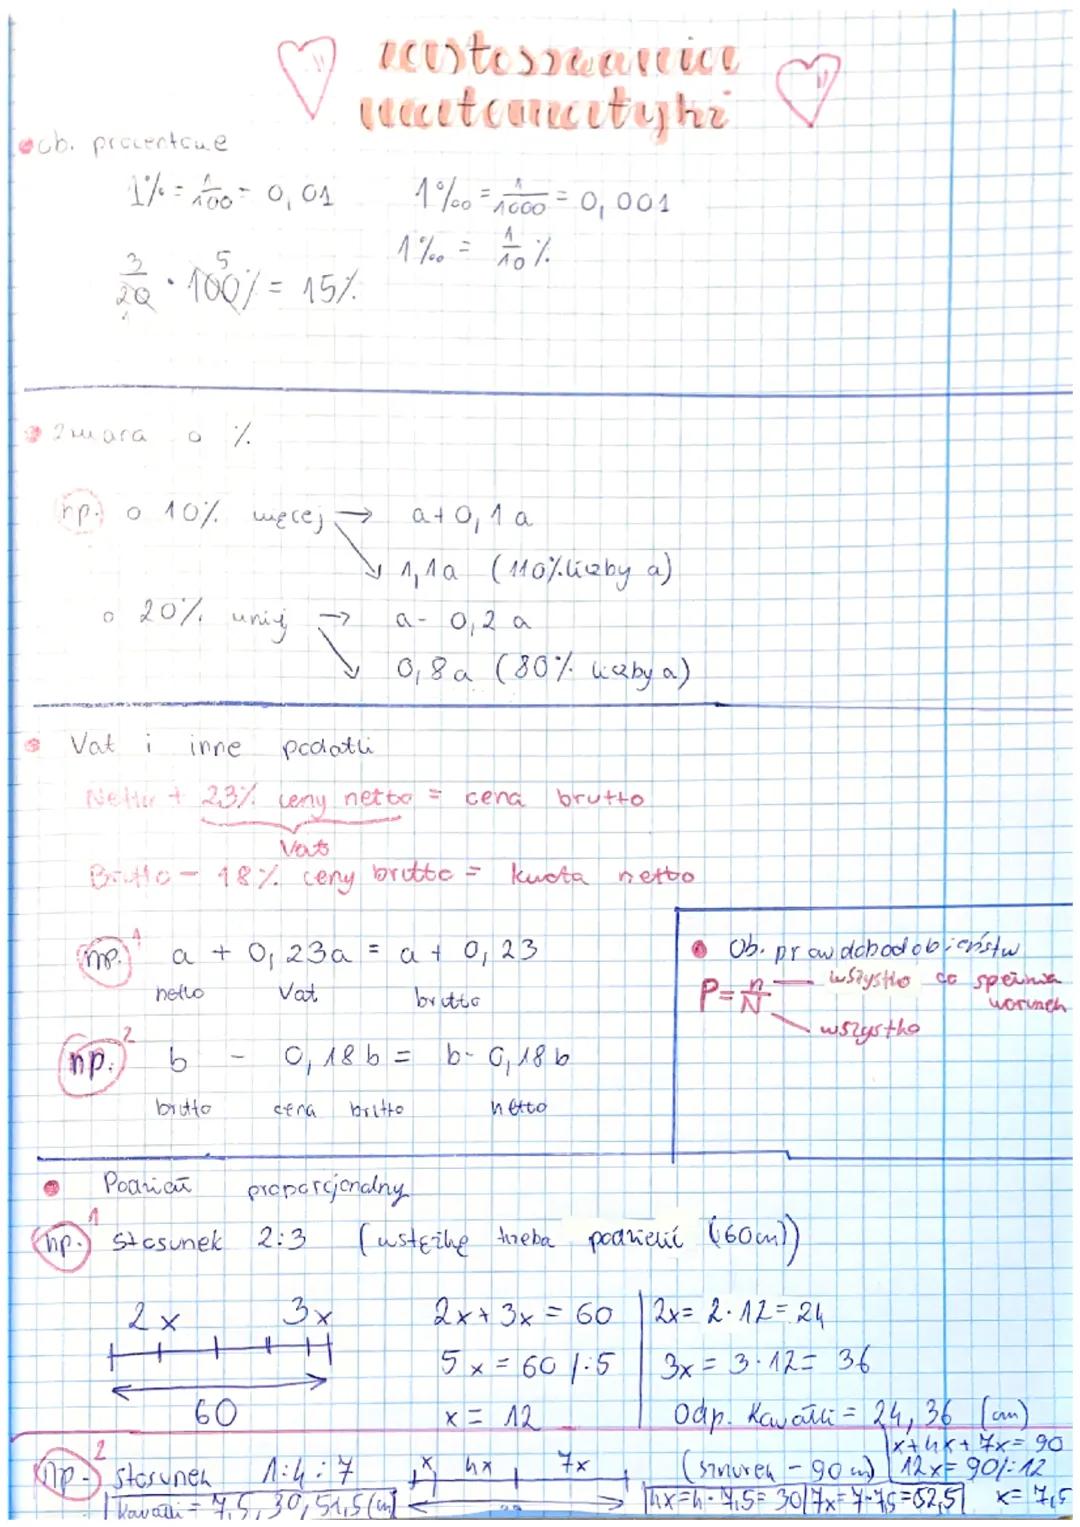 zastosowania
matematyki
ob. procentowe
1% = 1/100 = 0,01
1‰ = 1/1000 = 0,001
1‰ = 1/10 %
3/20 · 100% = 15%
5
1
Zmiana o %
np. o 10% więcej → a+0,1a
↘ 1,1a (110% liczby a)
o 20% mniej → a- 0,2a
↘ 0,8a (80% liczby a)
Vat i inne podatki
Netto + 23% ceny netto = cena brutto
Vat
Brutto - 18% ceny brutto = kwota netto
np. 1 a + 0,23a = a + 0,23
netto Vat brutto
np. 2 b - 0,18b = b- 0,18b
brutto cena brutto netto
Ob. prawdobodobieństw
P = n/N
wszystko co spełnia
warunek
wszystko
Podział proporcjonalny
np. 1 stosunek 2:3 (wstężkę trzeba podzielić (60cm))
2x 3x
60
2x+3x = 60
5x = 60 /:5
x = 12
2x = 2·12 = 24
3x = 3·12 = 36
Odp. Kawałki = 24, 36 (cm)
np. 2 stosunek 1:4:7
x 4x 7x
(sznurek - 90cm)
x+4x+7x = 90
12x = 90/:12
x = 7,5
4x=4·7,5=30
7x=7·7,5=52,5
Kawałki = 7,5, 30, 51,5 (cm)